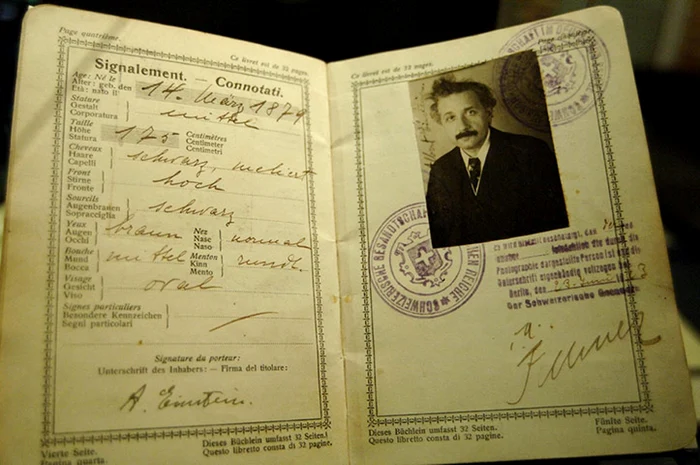 Page quatrième.
Ce livret est de 32 pages.
Signalement. — Connotati.
Age: Né le
Alter: geb. den
Età: nato il
14. März 1879
Stature
Gestalt
Corporatura
mittel
Taille
Höhe
Statura
175
Centimètres
Centimeter
Centimetri
Cheveux
Haare
Capelli
schwarz, meliert
Front
Stirne
Fronte
hoch
Sourcils
Augenbrauen
Sopracciglia
schwarz
Yeux
Augen
Occhi
braun
Nez
Nase
Naso
normal
Bouche
Mund
Bocca
mittel
Menton
Kinn
Mento
rund.
Visage
Gesicht
Viso
oval
Signes particuliers
Besondere Kennzeichen
Segni particolari
Signature du porteur:
Unterschrift des Inhabers: — Firma del titolare:
A. Einstein.
Vierte Seite.
Pagina quarta.
Dieses Büchlein umfasst 32 Seiten.
Questo libretto consta di 32 pagine.
Ce livret est de 32 pages.
SCHWEIZERISCHE GESANDTSCHAFT
Photographie dargestellte Person ist und die
Unterschrift eigenhändig vollzogen
Berlin, den
Der Schweizerische
Dieses Büchlein umfasst 32 Seiten
Questo libretto consta di 32 pagine.
Fünfte Seite.
Pagina quinta.